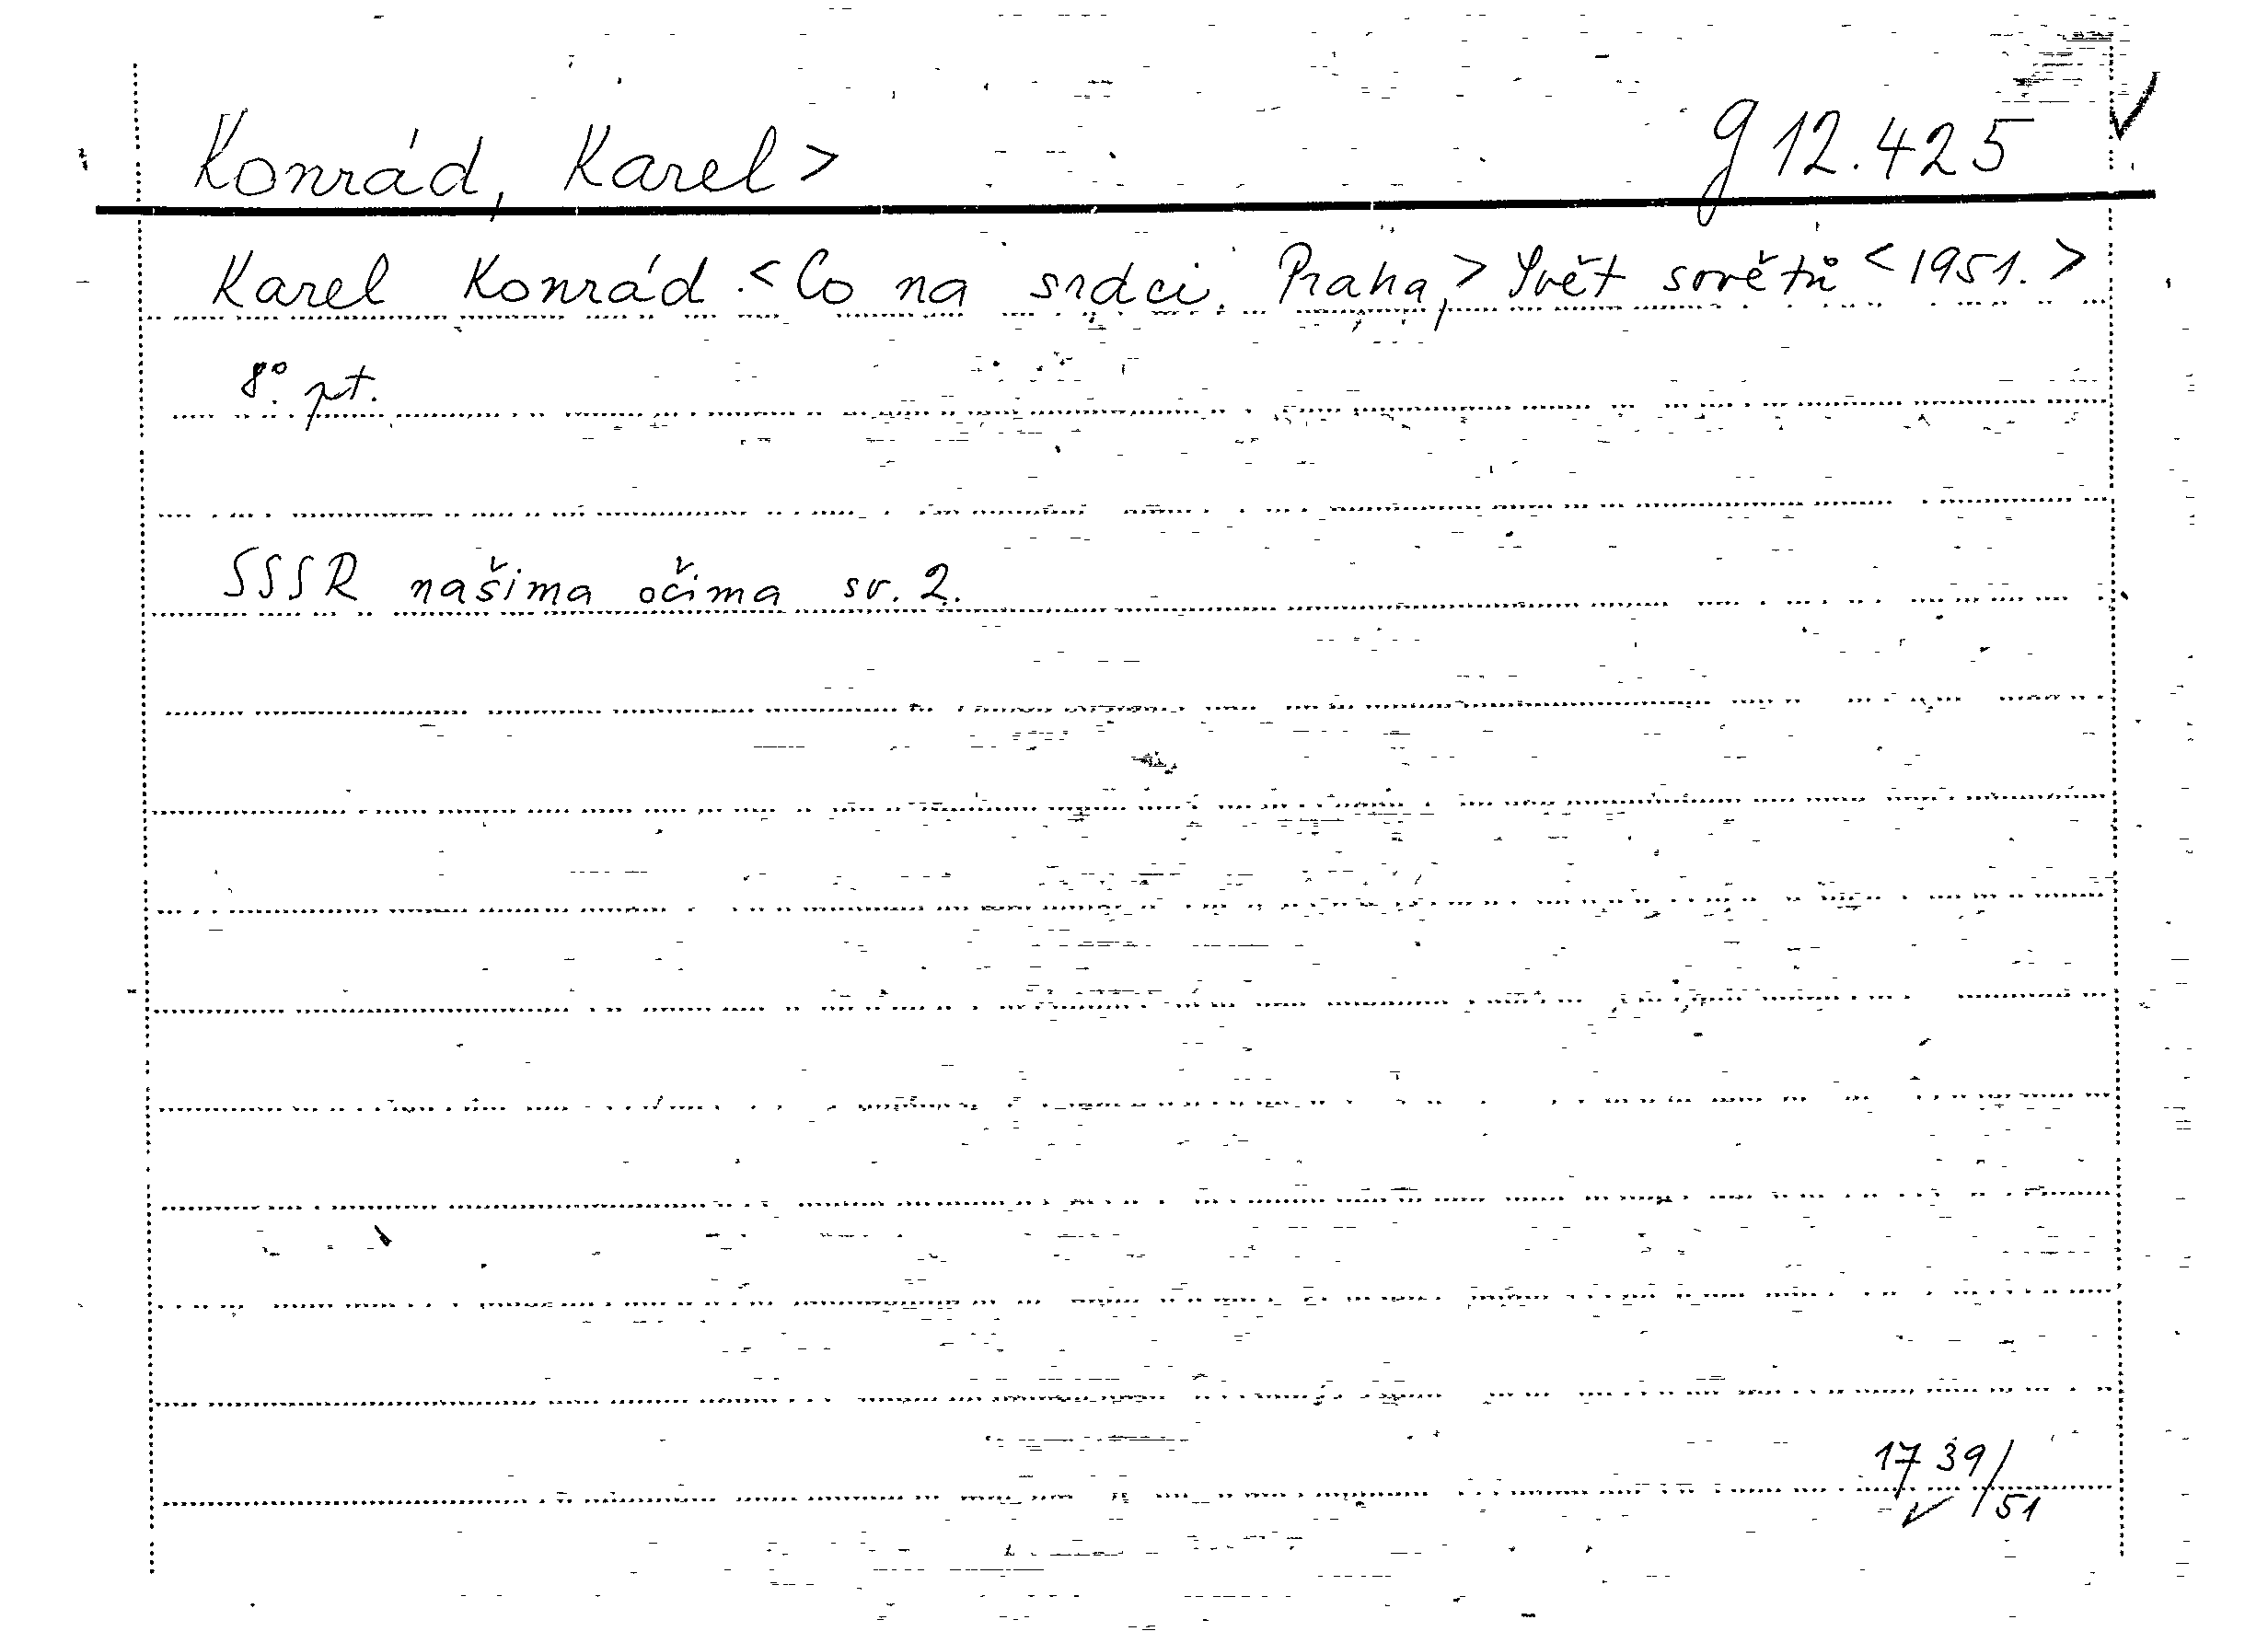 Konrád, Karel > g 12.425 ✓
Karel Konrád. < Co na srdci. Praha, > Svět sovětů < 1951. >
8° pt.
SSSR našima očima sv. 2.
1739/51 ✓